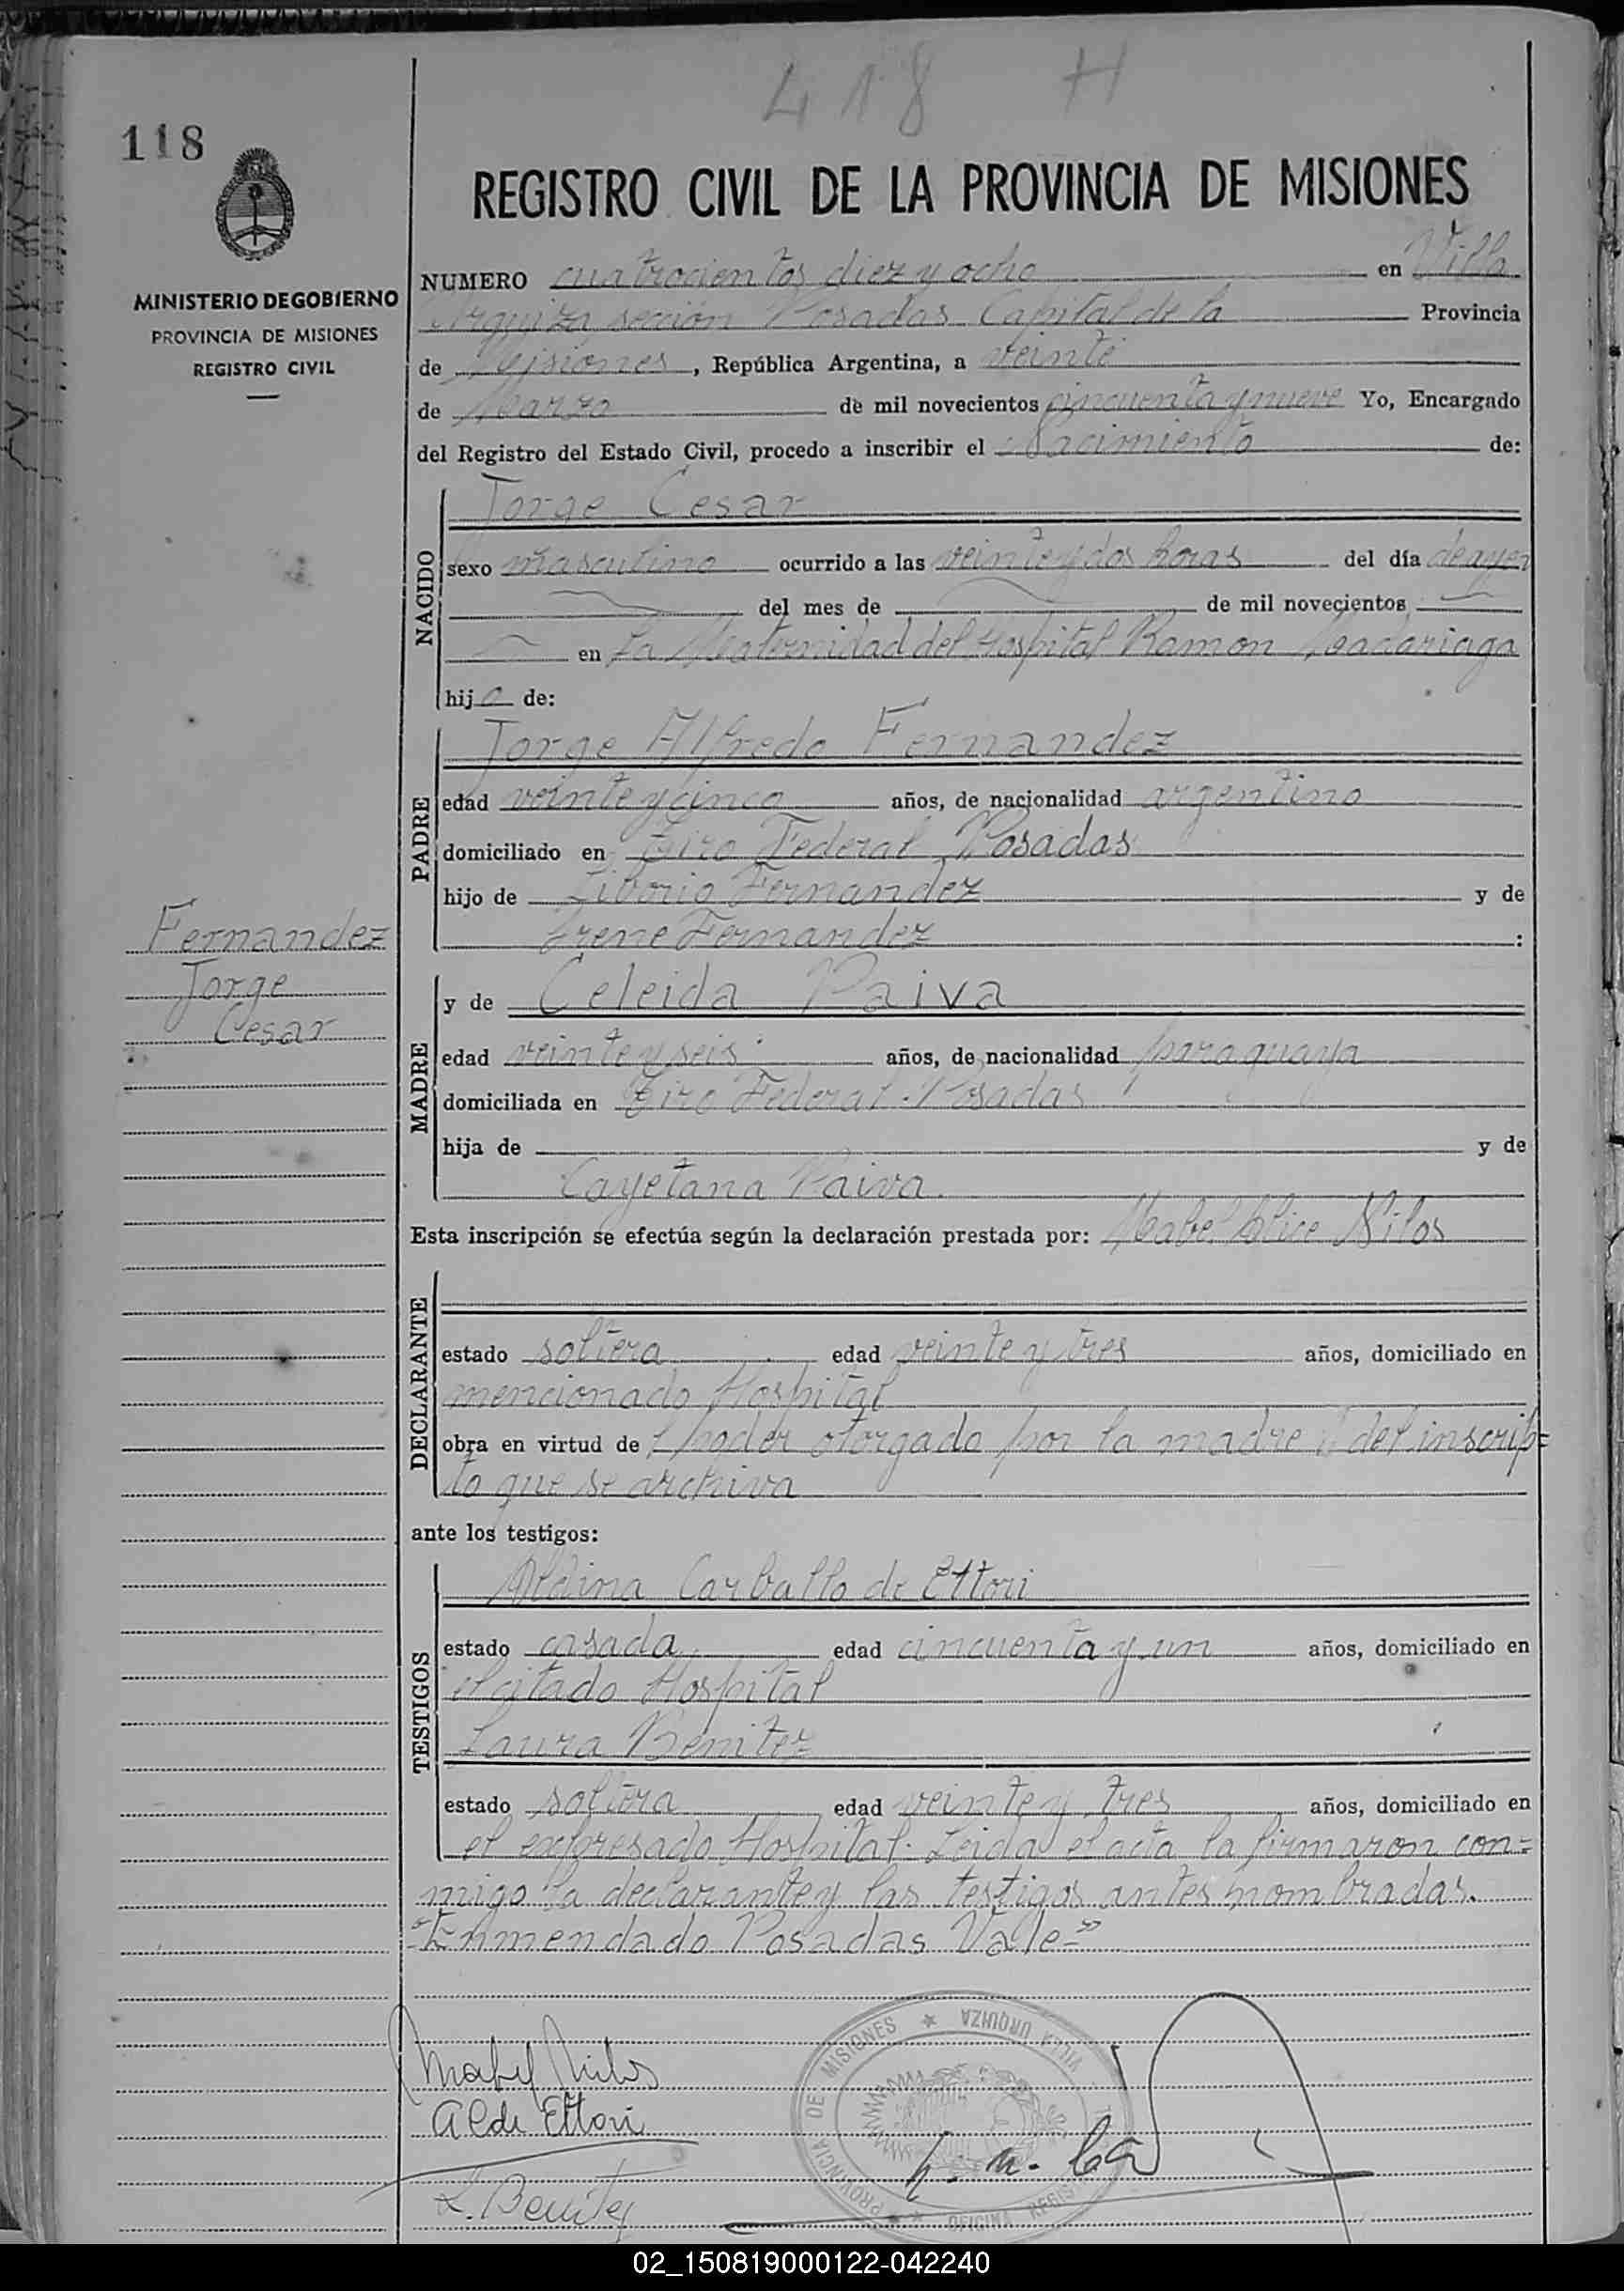 418 H
118
REGISTRO CIVIL DE LA PROVINCIA DE MISIONES
MINISTERIO DE GOBIERNO
PROVINCIA DE MISIONES
REGISTRO CIVIL
NUMERO cuatrocientos diez y ocho en Villa
Urquiza sección Posadas Capital de la Provincia
de Misiones, República Argentina, a veinte
de Marzo de mil novecientos cincuenta y nueve Yo, Encargado
del Registro del Estado Civil, procedo a inscribir el Nacimiento de:
NACIDO
Jorge Cesar
sexo masculino ocurrido a las veinte y dos horas del día de ayer
del mes de de mil novecientos
en La Maternidad del Hospital Ramon Madariaga
hijo de:
PADRE
Jorge Alfredo Fernandez
edad veinte y cinco años, de nacionalidad argentino
domiciliado en Tiro Federal Posadas
hijo de Liborio Fernandez y de
Irene Fernandez :
Fernandez
Jorge
Cesar
MADRE
y de Celeida Paiva
edad veinte y seis años, de nacionalidad paraguaya
domiciliada en Tiro Federal. Posadas
hija de y de
Cayetana Paiva.
Esta inscripción se efectúa según la declaración prestada por: Mabel Alice Nilos
DECLARANTE
estado soltera edad veinte y tres años, domiciliado en
mencionado Hospital
obra en virtud de poder otorgado por la madre del inscrip=
to que se archiva
ante los testigos:
TESTIGOS
Aldina Carballo de Ettori
estado casada edad cincuenta y un años, domiciliado en
el citado Hospital
Laura Benitez
estado soltera edad veinte y tres años, domiciliado en
el expresado Hospital. Leida el acta la firmaron con=
migo la declarante y las testigos antes nombradas.
"Enmendado Posadas Vale"
Mabel Nilos
Alde Ettori
L. Benitez
PROVINCIA DE MISIONES ★ VILLA URQUIZA
OFICINA REGISTRO
02_150819000122-042240